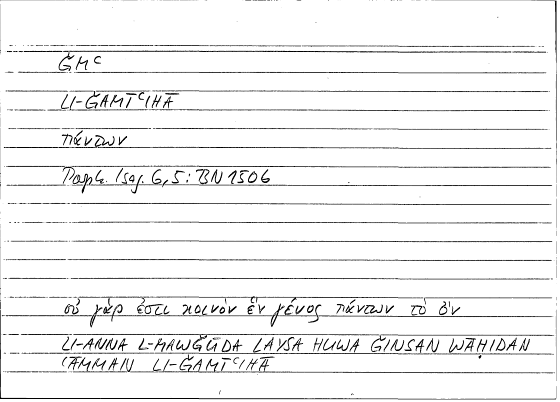 ǦMᶜ
LI-ǦAMĪᶜIHĀ
πάντων
Porph. Isag. 6,5: BN 1506
οὐ γάρ ἐστι κοινὸν ἓν γένος πάντων τὸ ὄν
LI-ANNA L-MAWǦŪDA LAYSA HUWA ǦINSAN WĀḤIDAN
ᶜĀMMAN LI-ǦAMĪᶜIHĀ